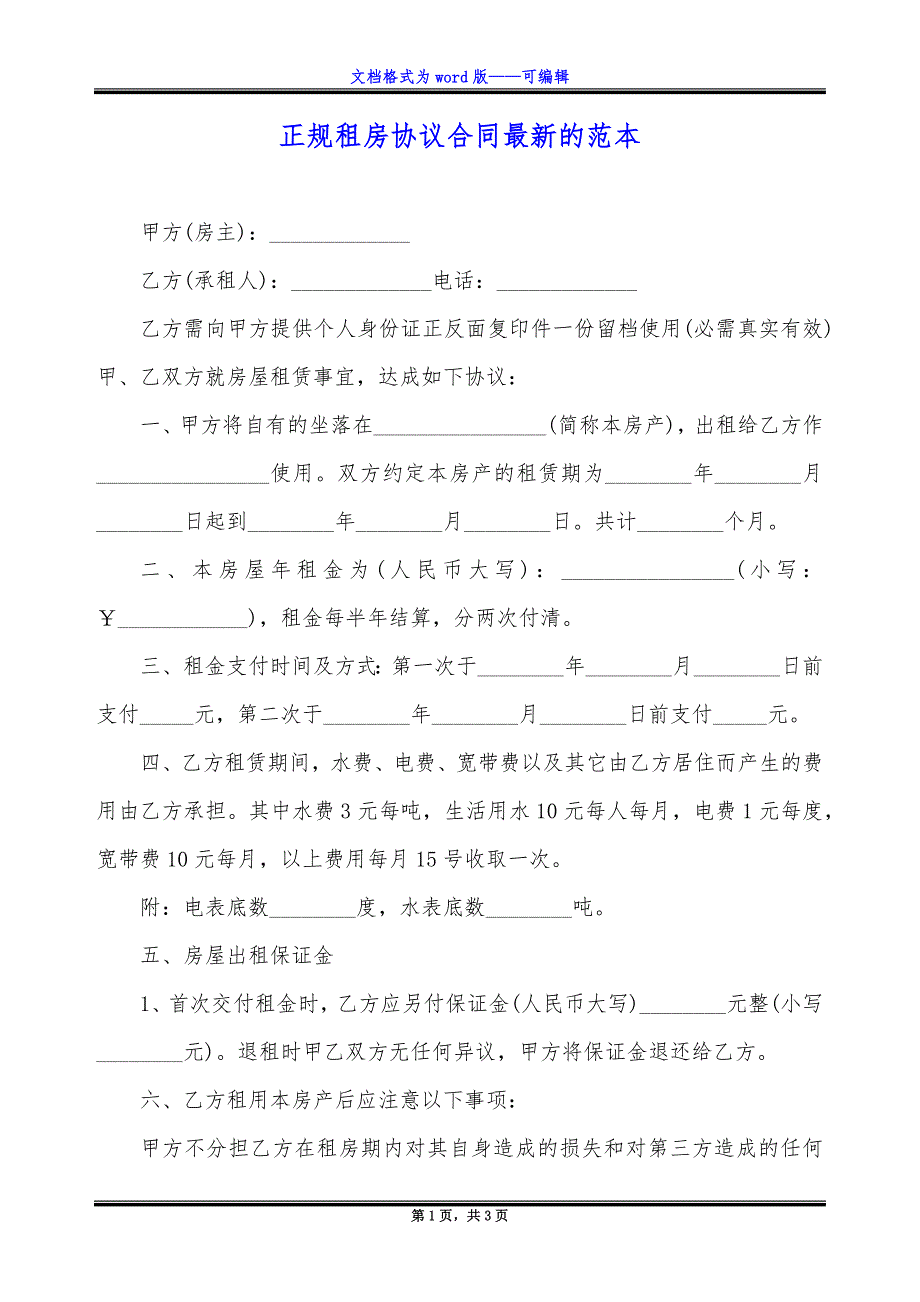 文档格式为 word 版——可编辑
正规租房协议合同最新的范本
甲方(房主)：_____________
乙方(承租人)：_____________电话：_____________
乙方需向甲方提供个人身份证正反面复印件一份留档使用(必需真实有效)
甲、乙双方就房屋租赁事宜，达成如下协议：
一、甲方将自有的坐落在________________(简称本房产)，出租给乙方作
________________使用。双方约定本房产的租赁期为________年________月
________日起到________年________月________日。共计________个月。
二、本房屋年租金为(人民币大写)：________________(小写：
￥____________)，租金每半年结算，分两次付清。
三、租金支付时间及方式：第一次于________年________月________日前
支付_____元，第二次于________年________月________日前支付_____元。
四、乙方租赁期间，水费、电费、宽带费以及其它由乙方居住而产生的费
用由乙方承担。其中水费 3 元每吨，生活用水 10 元每人每月，电费 1 元每度，
宽带费 10 元每月，以上费用每月 15 号收取一次。
附：电表底数________度，水表底数________吨。
五、房屋出租保证金
1、首次交付租金时，乙方应另付保证金(人民币大写)________元整(小写
________元)。退租时甲乙双方无任何异议，甲方将保证金退还给乙方。
六、乙方租用本房产后应注意以下事项：
甲方不分担乙方在租房期内对其自身造成的损失和对第三方造成的任何
第 1 页，共 3 页